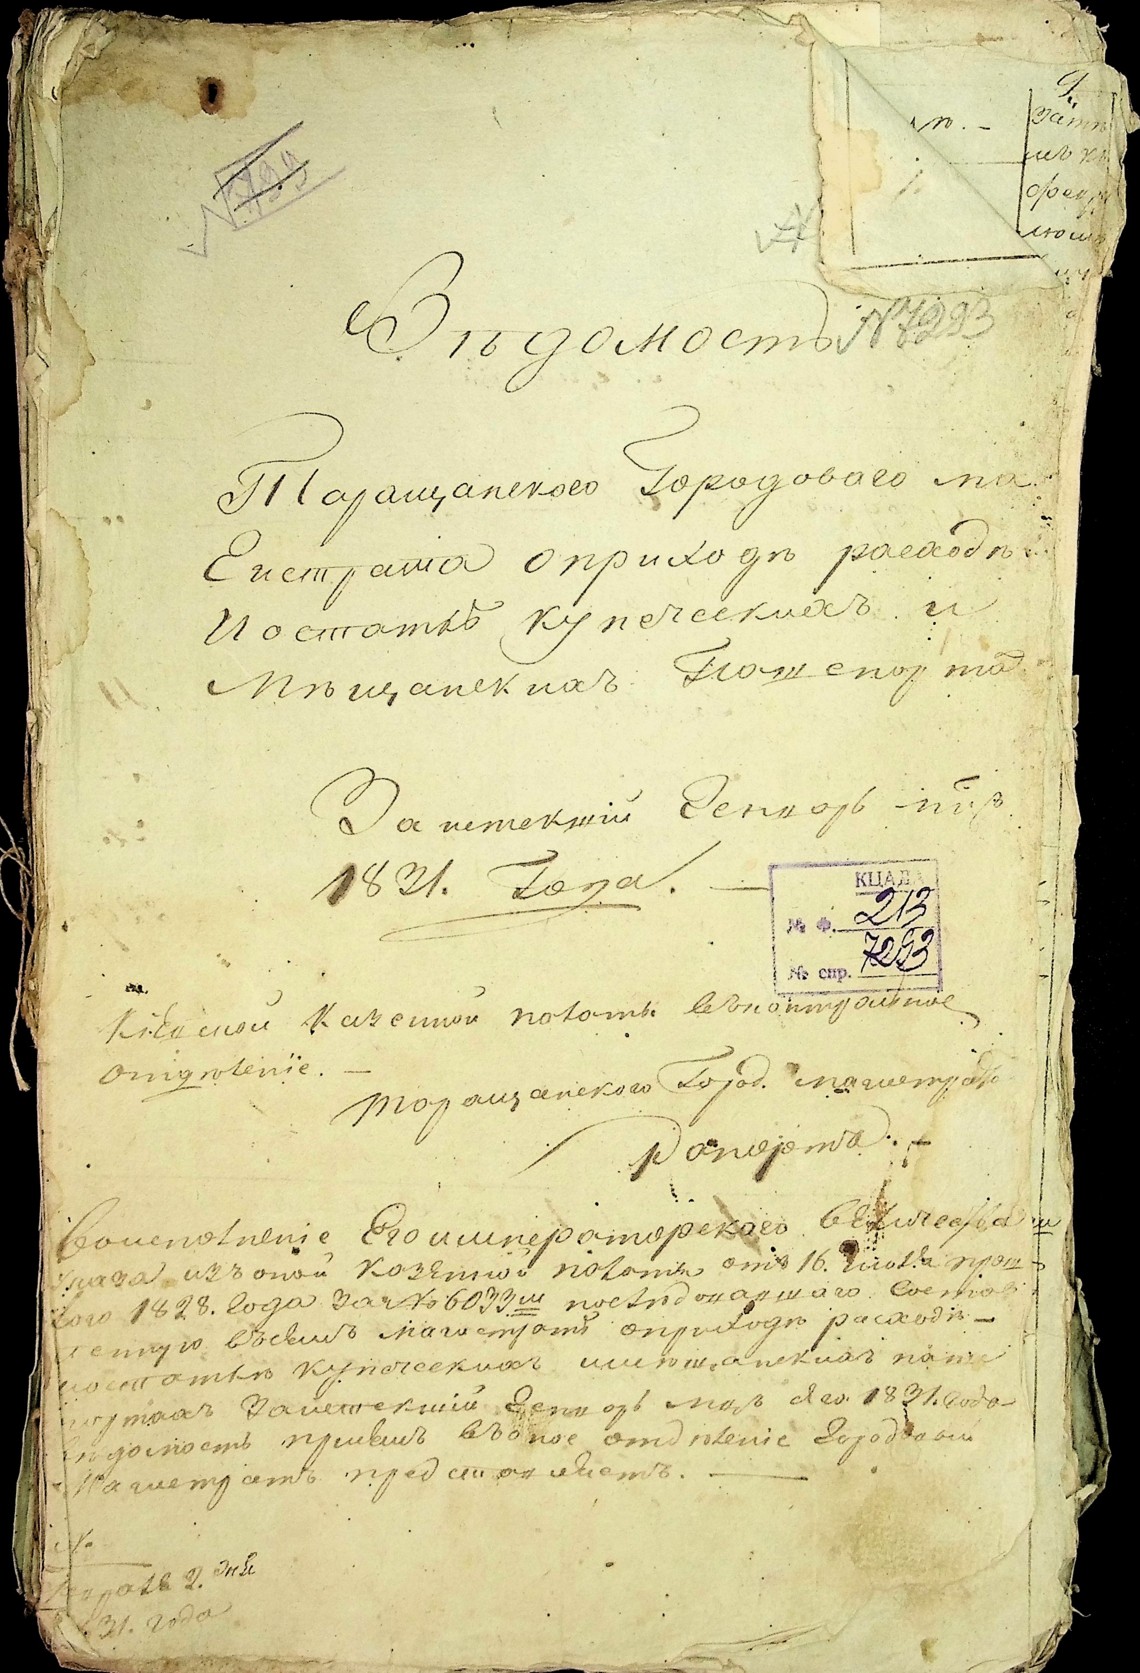 № 7293
Вѣдомость
Таращанского Городоваго ма
гистрата оприходѣ расходѣ
И остаткѣ купеческихъ и
мѣщанскихъ Пашепорта
Заистекшій Генварь м-ць
1831. Года. —
КЦАДА
№ ф. 213
№ спр. 7293
Кіевской Казенной полаты вконтрольное
отдѣленіе. —
Таращанского Город. магистрата
Рапортъ. —
Воисполненіе Его императорского величества
указа изъ оной казенной полаты отъ 16. прош
лого 1828. года за № 6033м последовавшаго состав
ленную въсемъ магистратѣ оприходѣ расходѣ
иостаткѣ купеческихъ имѣщанскихъ паше
портахъ Заистекшій Генварь м-ць сего 1831. года
вѣдомость присемъ въоное отдѣленіе Городовой
Магистратъ представляетъ. —
№
2. дня
1831. года